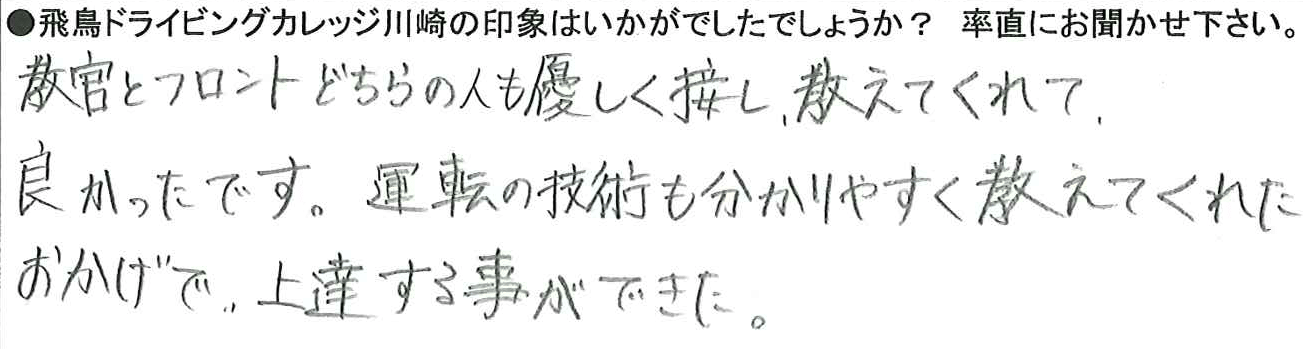 ●飛鳥ドライビングカレッジ川崎の印象はいかがでしたでしょうか？ 率直にお聞かせ下さい。
教官とフロントどちらの人も優しく接し、教えてくれて、
良かったです。運転の技術も分かりやすく教えてくれた
おかげで、上達する事ができた。